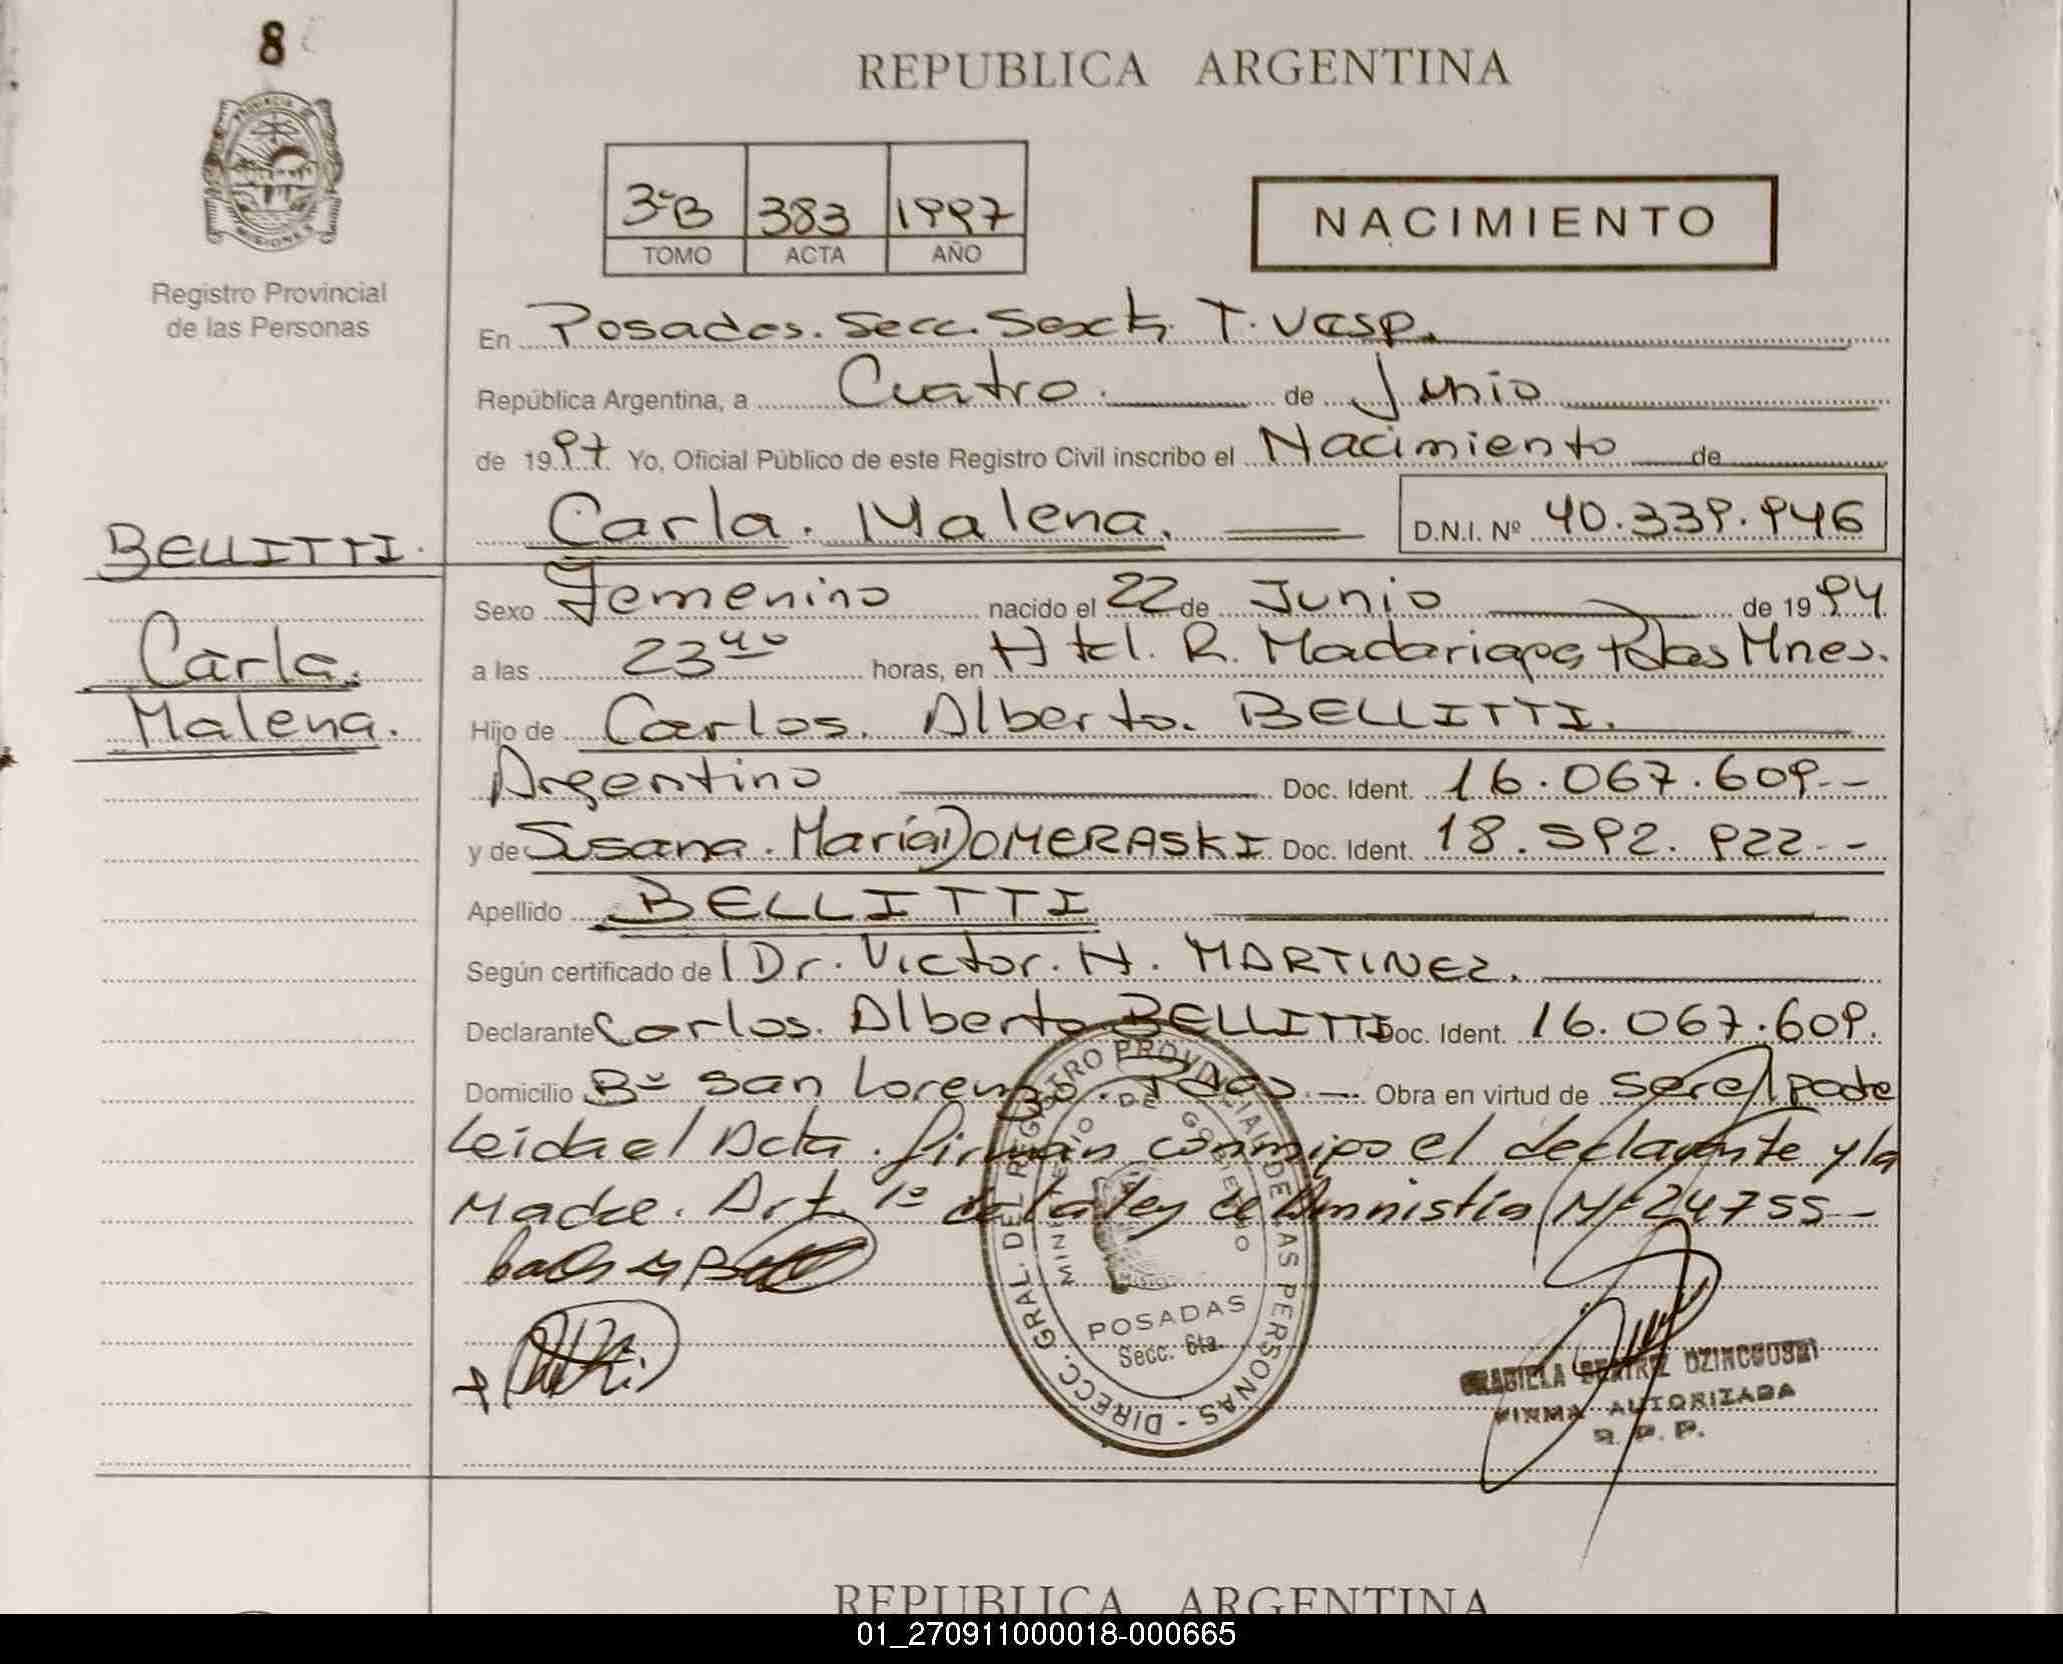 8
REPUBLICA ARGENTINA
PROVINCIA DE
MISIONES
Registro Provincial
de las Personas
3ºB 383 1997
TOMO ACTA AÑO
NACIMIENTO
En Posadas. Secc. Sexta. T. Vesp.
República Argentina, a Cuatro. de Junio
de 1997 Yo, Oficial Público de este Registro Civil inscribo el Nacimiento de
Carla. Malena. D.N.I. Nº 40.339.946
BELLITTI.
Carla.
Malena.
Sexo Femenino nacido el 22 de Junio de 1994
a las 23 40 horas, en Htal. R. Madariaga Pdas Mnes.
Hijo de Carlos. Alberto. BELLITTI.
Argentino Doc. Ident. 16.067.609.--
y de Susana. María DOMERASKI Doc. Ident. 18.592.922.--
Apellido BELLITTI
Según certificado de Dr. Victor. H. MARTINEZ.
Declarante Carlos. Alberto BELLITTI Doc. Ident. 16.067.609.
Domicilio Bº San Lorenzo. Pdas.-. Obra en virtud de ser el padre
Leída el Acta. firman conmigo el declarante y la
Madre. Art. 1º de la ley de Amnistía Nº 24755-
DIRECC. GRAL. DEL REGISTRO PROVINCIAL DE LAS PERSONAS -
MINISTERIO DE GOBIERNO
POSADAS
Secc. 6ta.
GRACIELA BEATRIZ
FIRMA AUTORIZADA
R. P. P.
REPUBLICA ARGENTINA
01_270911000018-000665